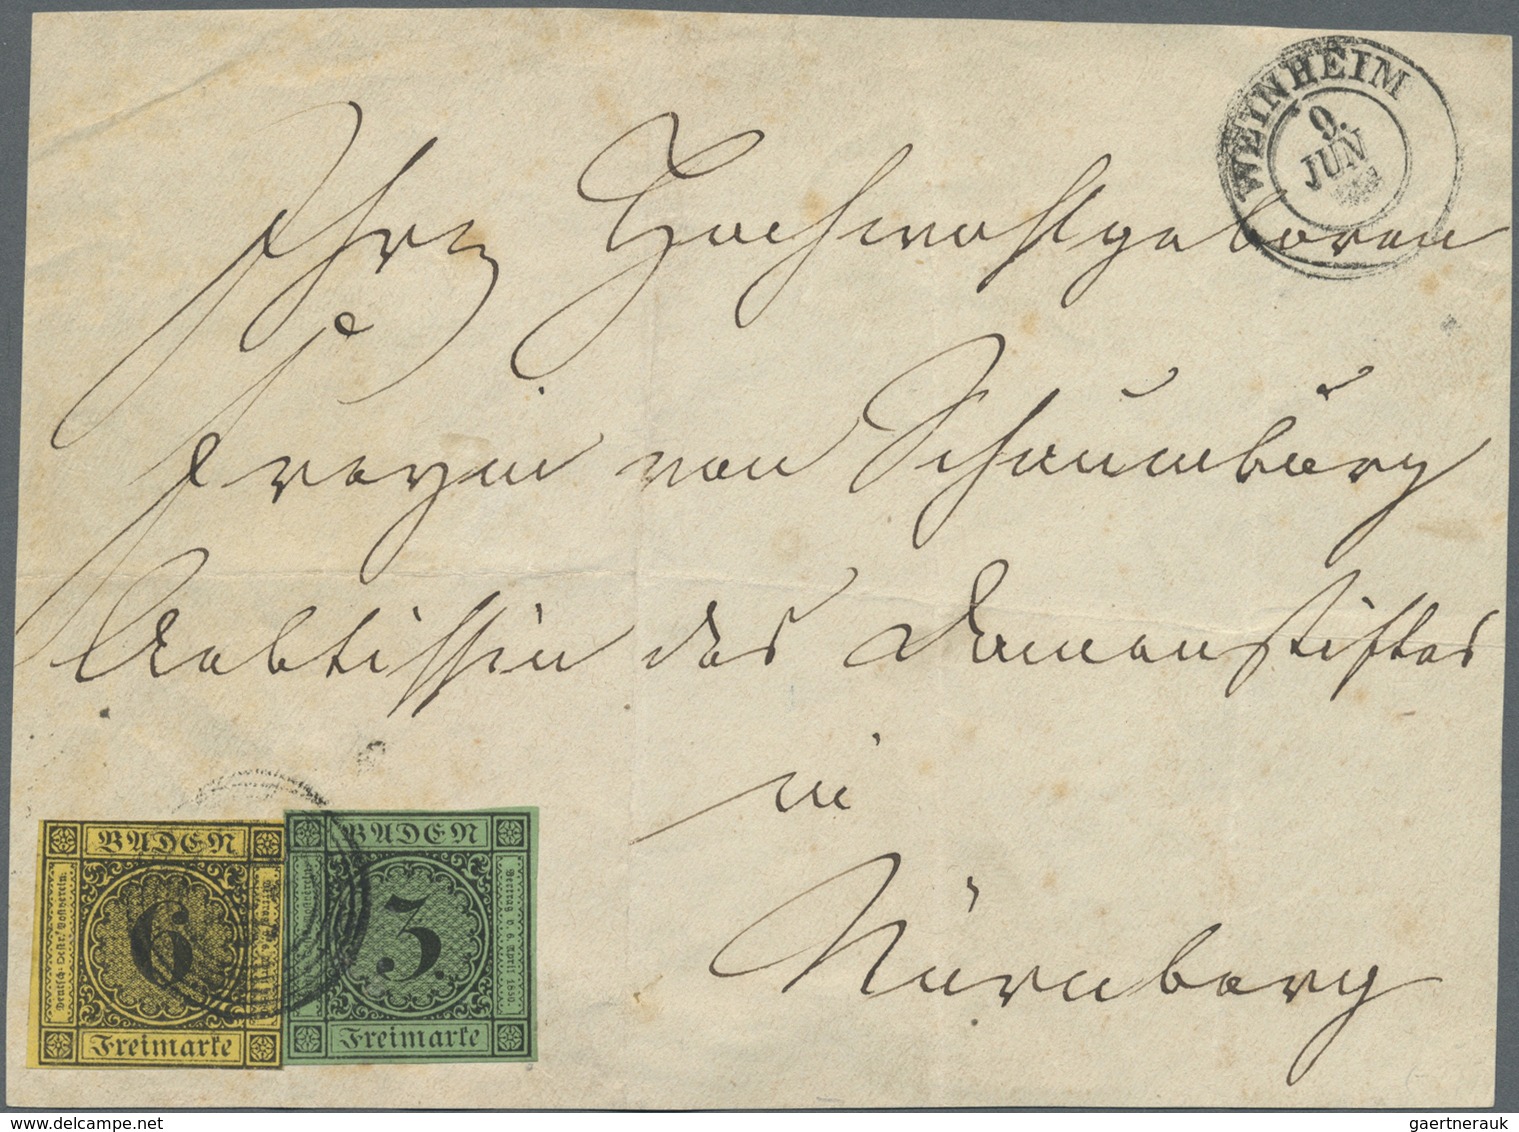 WEINHEIM
9.
JUN
Ihro Hochwohlgeboren
Freyin von Schaumburg
Aebtissin des Damenstiftes
in
Nürnberg
BADEN
Deutsch-Oestr. Postverein.
6
Freimarke
BADEN
3
Vertrag v. 6. April 1850.
Freimarke
gaertnerauk // delcampe.net